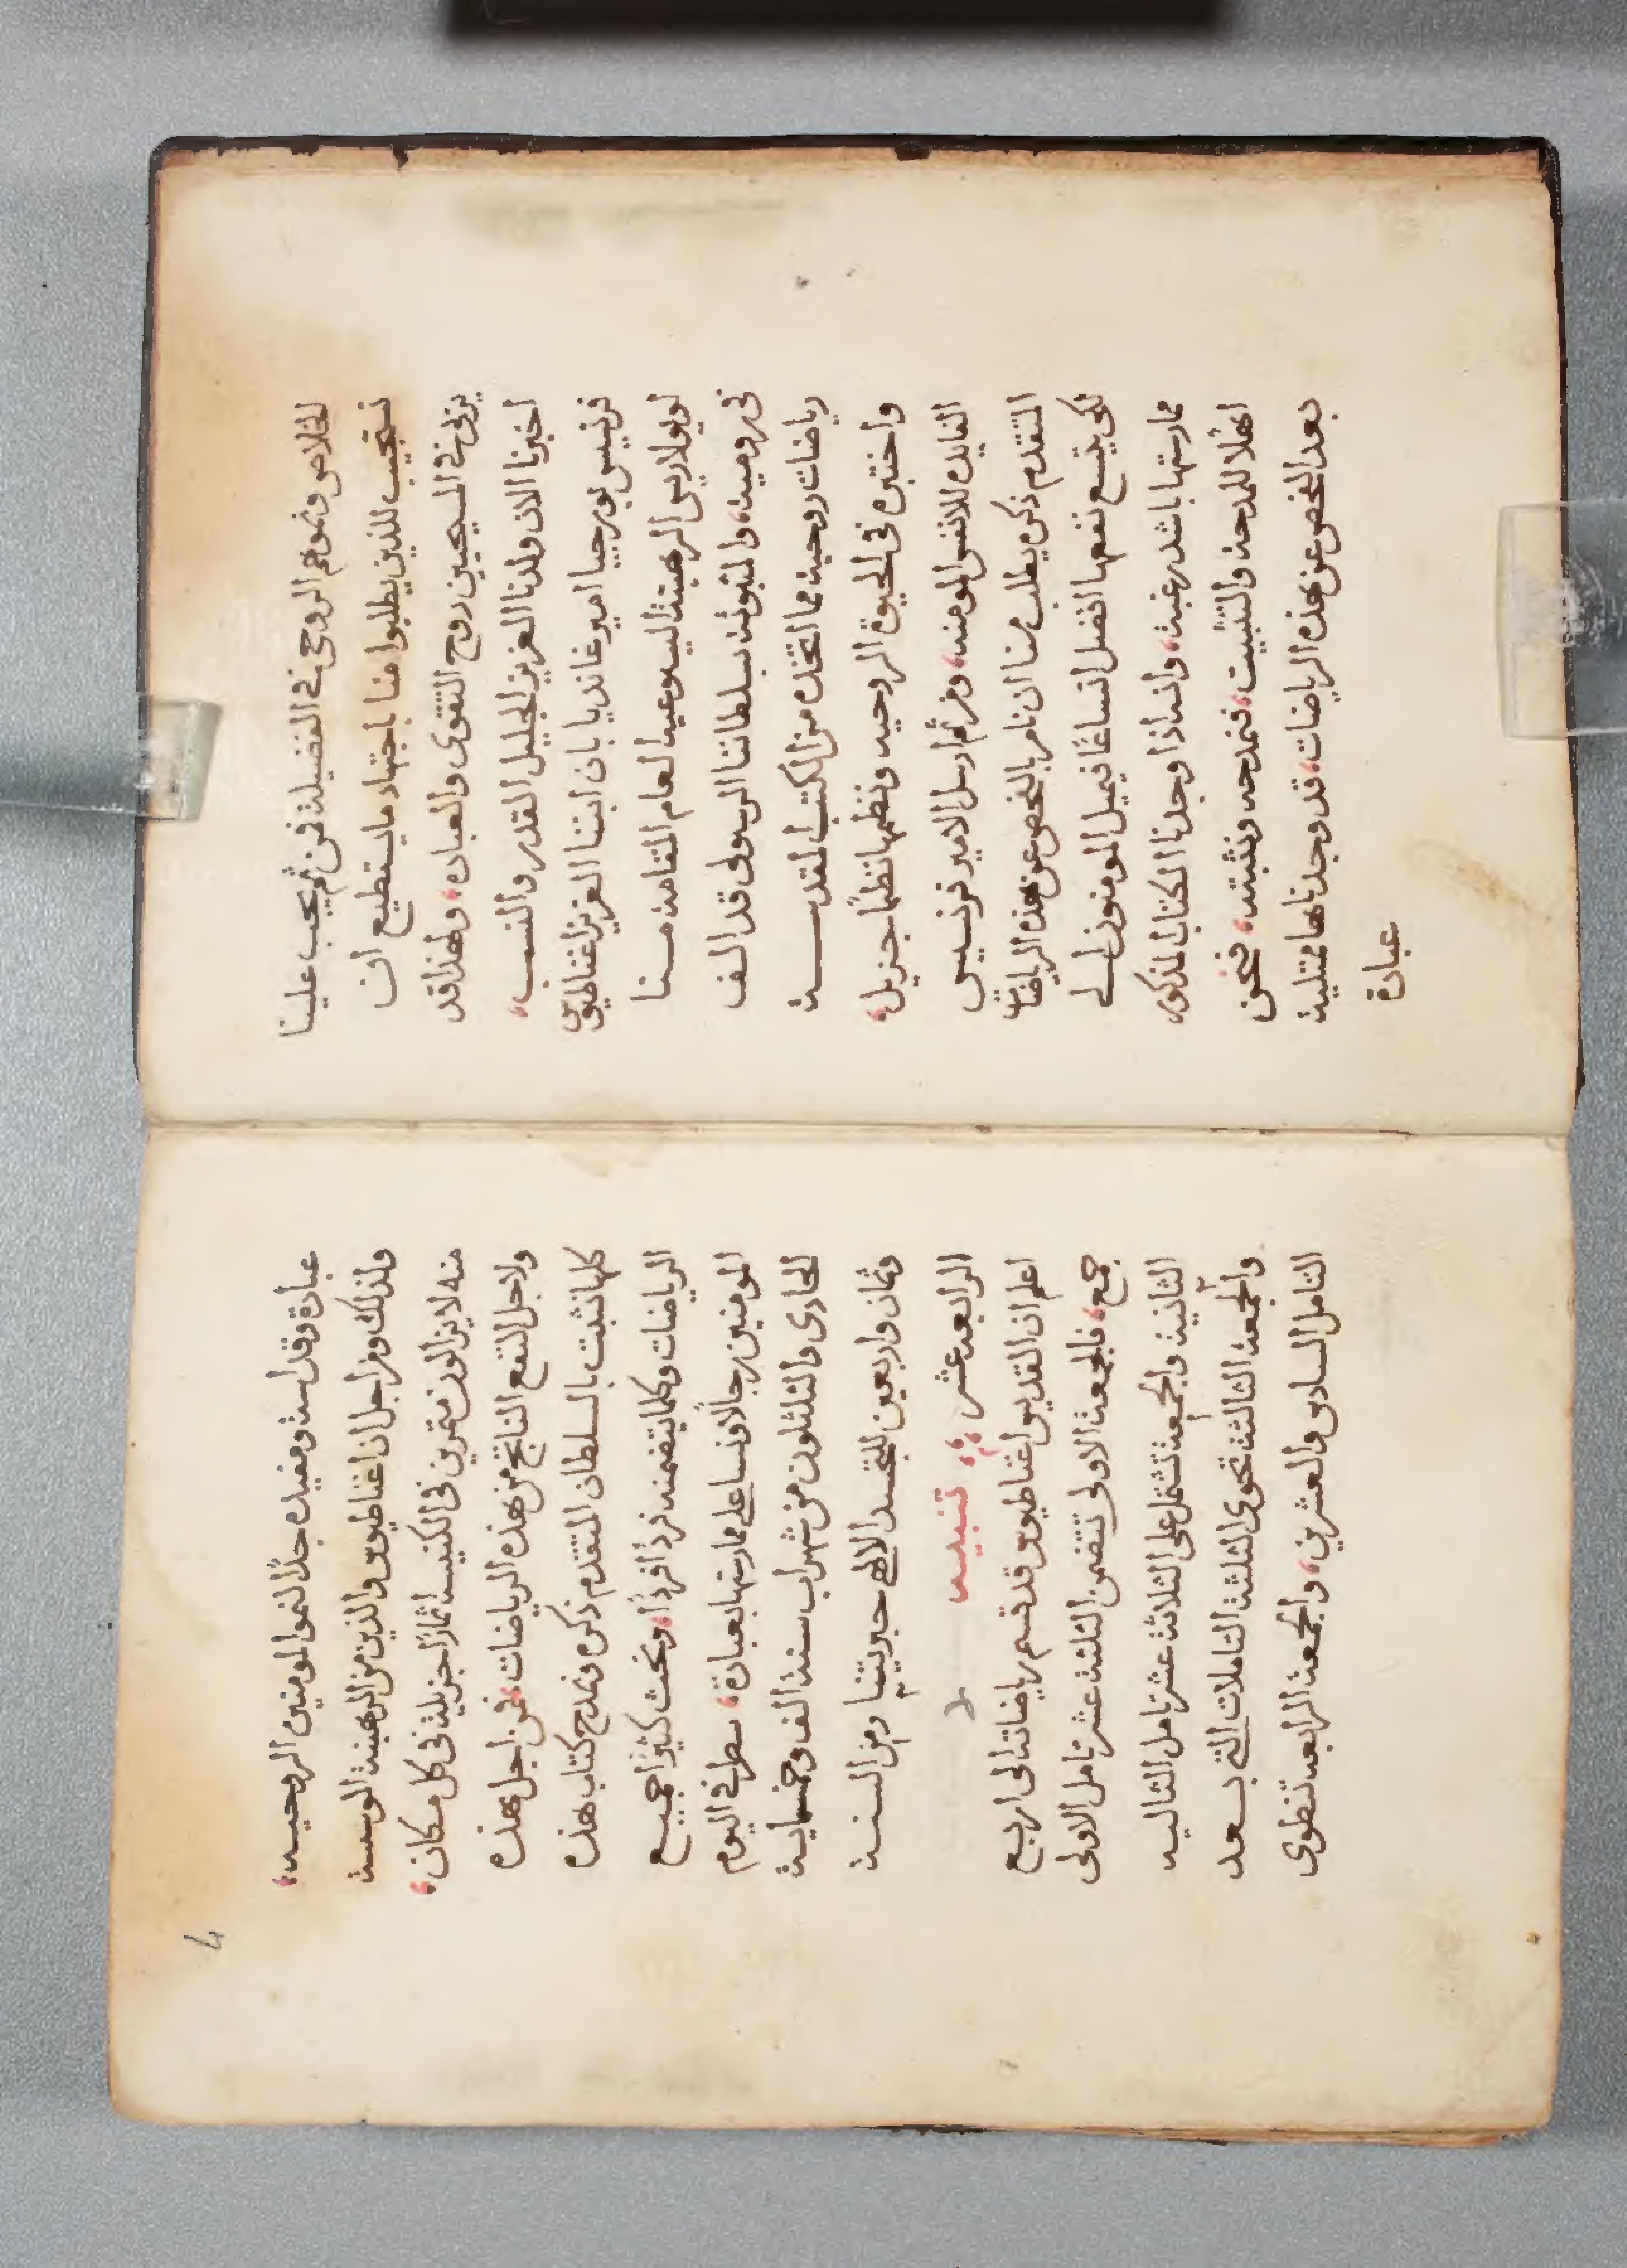 للخلاص ونموهم الروحى فى الفضيلة فمن ثم يجب علينا
نستجيب للذين يطلبوا منا باجتهاد ما يستطيع ان
يزيد فى المسيحيين روح التقوى والعباده، ولهذا قد
اخبرنا الان ولدنا العزيز الجليل القدر والنسب،
فرنسيس بورجيا امير غانديا بان ابننا العزيز اغناطيوس
لويولا ريس الرهبنة اليسوعية العام المقامة منا
فى رومية، والمثبوتة بسلطاننا الرسولى قد الف
رياضات روحية مما اتخذه من الكتب المقدسة
واختبره فى الحيوة الروحيه ونظمها نظمًا جزيل،
الفايده للانفس المومنه، ومن ثم ارسل الامير فرنسيس
المتقدم ذكره يطلب منا ان نامر بالفحص عن هذه الرياضات
لكى يتسع نفعها افضل اتساعًا فيميل المومنون الى
ممارستها باشد رغبة، وانه اذا وجدنا الكتاب المذكور
اهلًا للمدحة والتثبيت، فنمدحه ونثبته، فنحن
بعد الفحص عن هذه الرياضات، قد وجدناها ممتلية
عبادة
4
عبادة وقداسة ومفيده جدًا لنمو المومنين الروحيه،
ولذلك ومن اجل ان اغناطيوس والذين من الرهبنة الموسسة
منه لا يزالون مثمرين فى الكنيسة اثمارًا جزيلة فى كل مكان،
ولاجل النفع الناتج من هذه الرياضات، فمن اجل هذه
كلها نثبت بالسلطان المتقدم ذكره ونمدح كتاب هذه
الرياضات وكلما يتضمنه فردًا فردًا، ونحث كثيرًا جميع
المومنين رجالًا ونسا على ممارستها بعبادة، سطر فى اليوم
الحادى والثلثون من شهر اب سنة الف وخمسماية
وثمان واربعين للتجسد الالهى حبريتنا ومن السنة
الرابعه عشر ،،، تنبيه
اعلم ان القديس اغناطيوس قد قسم رياضاته الى اربع
جمع، فالجمعة الاولى تتضمن الثلثة عشر تامل الاولى
الثانية والجمعة تشتمل على الثلاثة عشر تامل التاليه
والجمعة الثالثة تحوى الثلثة التاملات التى بعد
التامل السادس والعشرين، والجمعة الرابعه تنطوى